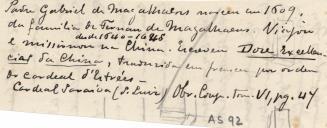 Padre Gabriel de Magalhaens nasceu em 1609.
da familia de Fernan de Magalhaens. Viajou
desde 1640-1648
e missionou na China. Escreveu Doze Excellen
cias da China, traduzida em francez por ordem
do Cardeal d'Estrées.
Cardeal Saraiva (S. Luiz) Obr. Comp. tom. VI, pag. 47
AS 92